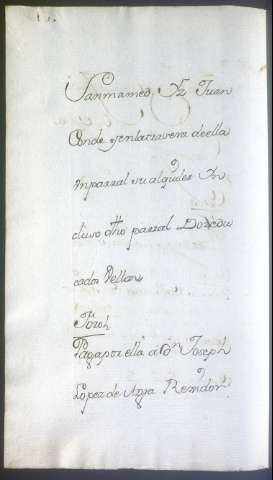 Sanmamed Yz Juan
Conde yenlatravesa deella
unparral su alquiler In
cluso dho parral Dozedu
cados Vellon
Foroh
Pagaporella á Dn Joseph
Lopez de Anja Remdor